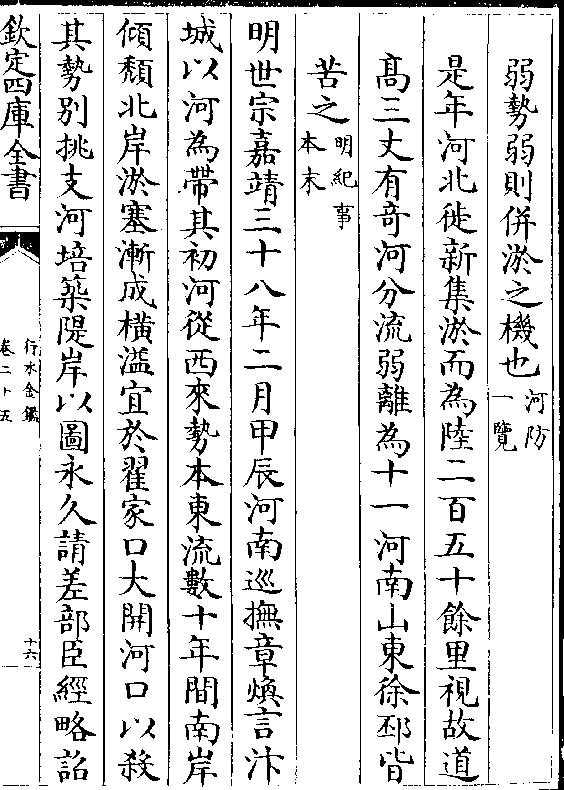 弱勢弱則併淤之機也河防一覽
是年河北徙新集淤而為陸二百五十餘里視故道
髙三丈有竒河分流弱離為十一河南山東徐邳皆
苦之明紀事本末
明世宗嘉靖三十八年二月甲辰河南巡撫章煥言汴
城以河為帶其初河從西來勢本東流數十年間南岸
傾頽北岸淤塞漸成橫溢宜於翟家口大開河口以殺
其勢别挑支河培築隄岸以圖永久請差部臣經略詔
欽定四庫全書
行水金鑑
卷二十五
十六